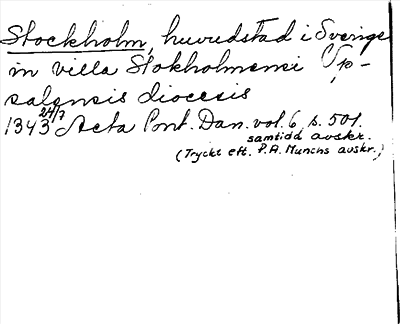 Stockholm, huvudstad i Sverige
in villa Stokholmensi Up-
salensis diocesis
1343 24/7 Acta Pont. Dan. vol. 6 s. 501.
samtida avskr.
(Tryckt eft. P.A. Munchs avskr.)